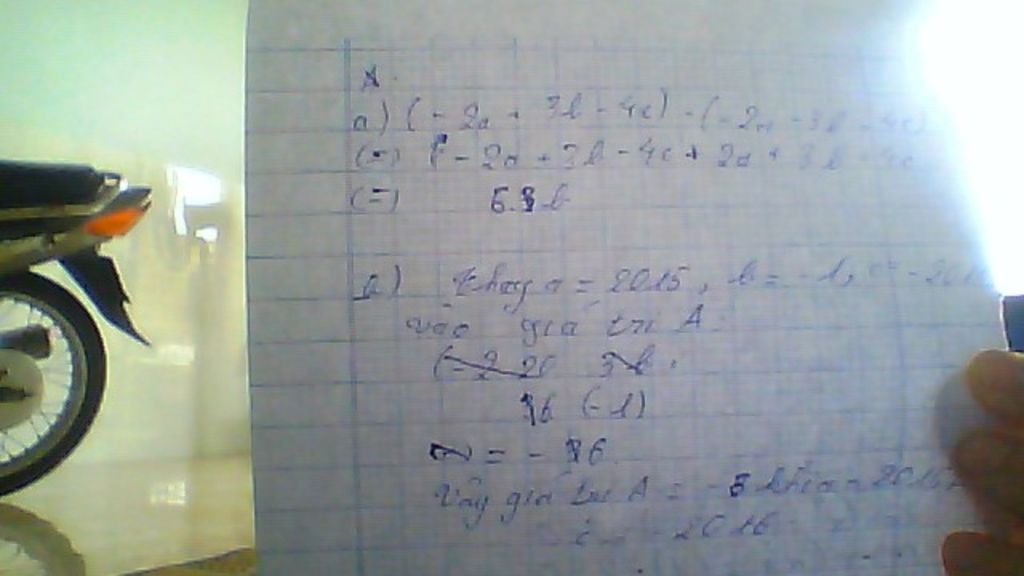 A.
a) (- 2a + 3b - 4c) - (- 2a - 3b - 4c)
(=) - 2a + 3b - 4c + 2a + 3b + 4c
(=) 6. b
b) thay a = 2015, b = -1, c = - 201
vào giá trị A:
6 (-1)
= - 6
Vậy giá trị A = - 6 khi a = 2015
c = - 2016